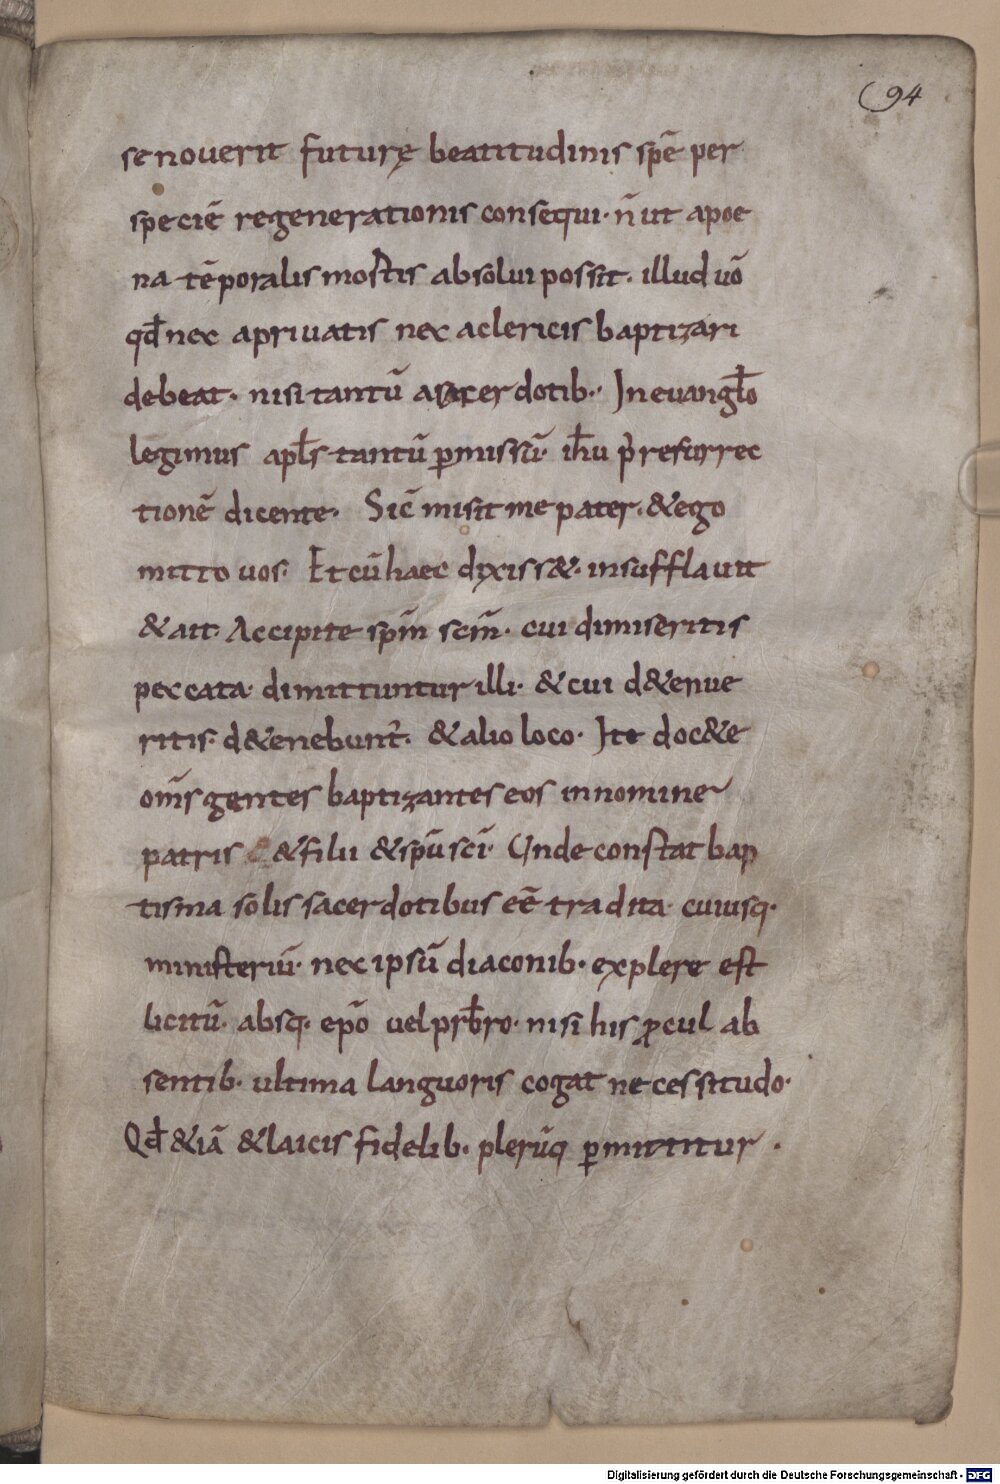 94
se nouerit futurę beatitudinis spē per
speciē regenerationis consequi· n̄ ut apoe
na tēporalis mortis absolui possit· illud uō
qđ nec apriuatis nec aclericis baptizari
debeat· nisi tantū asacerdotib·· In euanglō
legimus apl̄s tantū ꝑmissū· ih̄u p̄ resurrec
tionē dicente· Sic̄ misit me pater· & ego
mitto uos· Et cū haec dixiss&· insufflauit
& ait· Accipite spm̄ scm̄· cui dimiseritis
peccata· dimittuntur illi· & cui d&enue
ritis· d&enebunt᷑· & alio loco· Ite doc&e
om̄s gentes baptizantes eos in nomine
patris & filii & spū sci̅· Unde constat bap
tisma solis sacerdotibus eē tradita· cuiusq·
ministeriū· nec ipsū diaconib· explere est
licitū· absq· epō uel prb̄ro· nisi his ꝓcul ab
sentib· ultima languoris cogat necessitudo·
Qđ &iā & laicis fidelib· plerūq ꝑmittitur ·
Digitalisierung gefördert durch die Deutsche Forschungsgemeinschaft - DFG